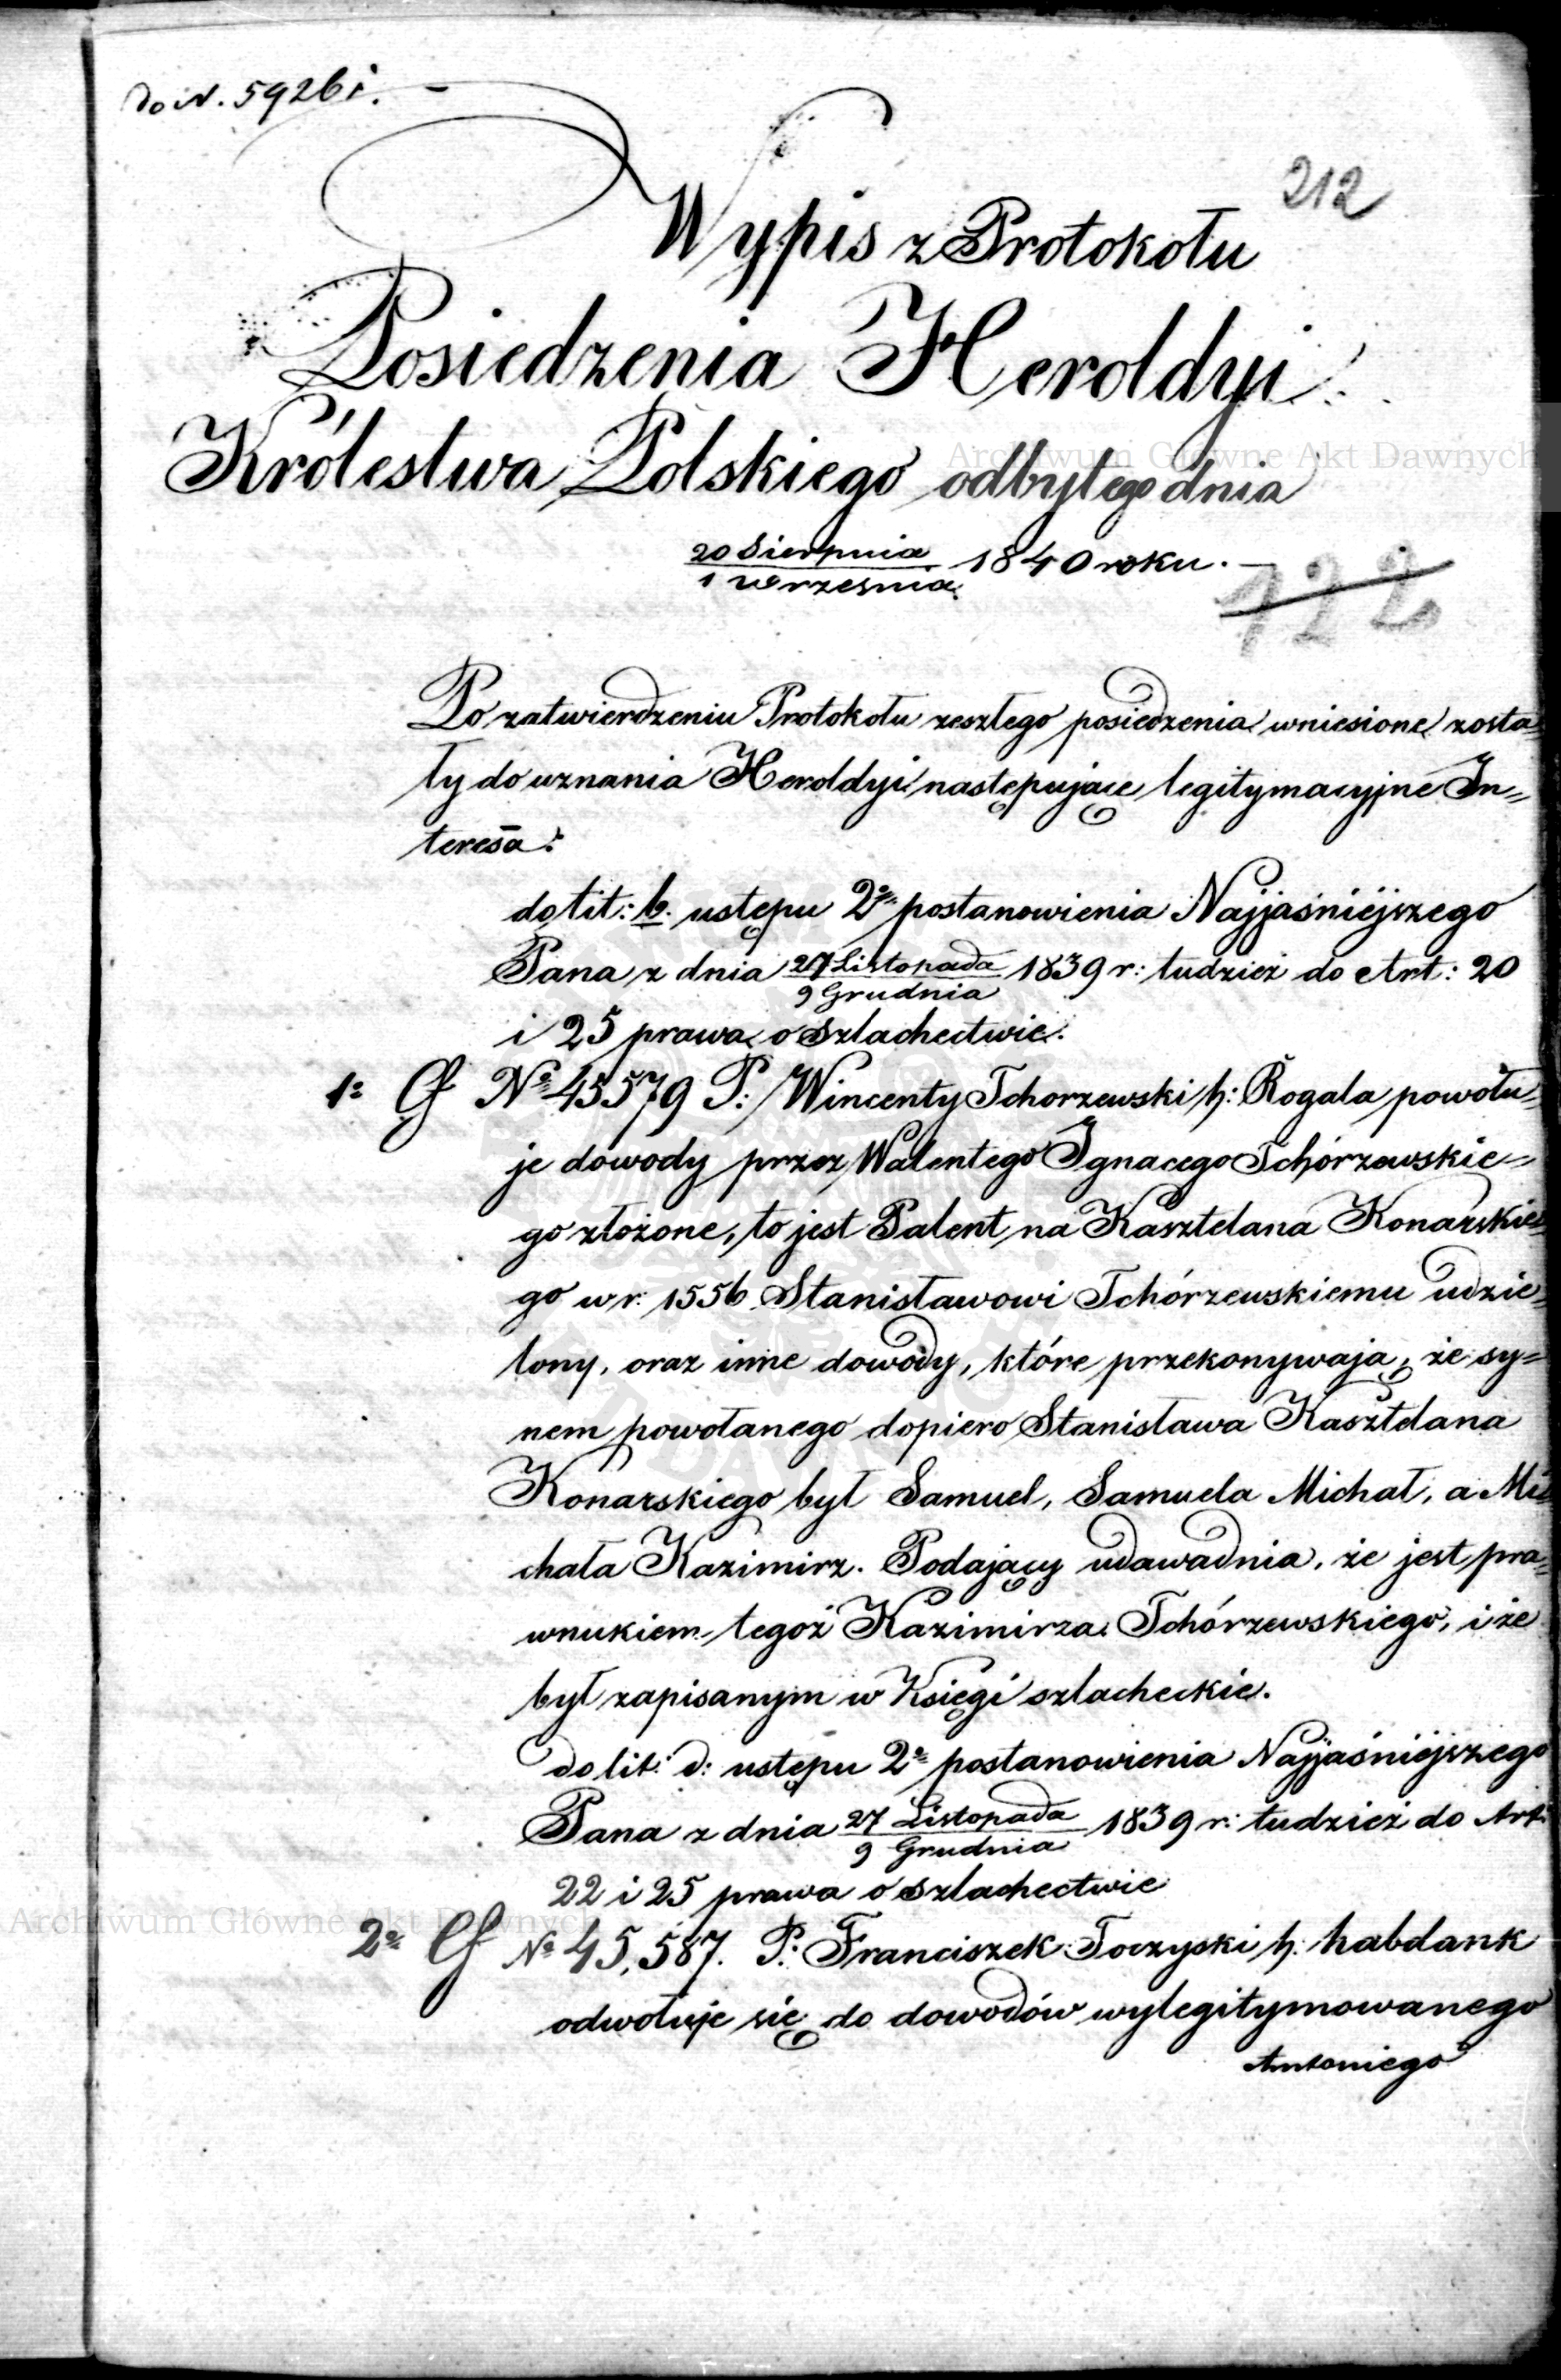 do N. 5926i.
212
Wypis z Protokołu
Posiedzenia Heroldyi
Królestwa Polskiego odbytego dnia
Archiwum Główne Akt Dawnych
20 Sierpnia
1 Września 1840 roku.
122
Po zatwierdzeniu Protokołu zeszłego posiedzenia wniesione zosta=
ły do uznania Heroldyi następujące legitymacyjne In=
teressa:
do lit: b. ustępu 2º postanowienia Najjaśniejszego
Pana z dnia 27 Listopada / 9 Grudnia 1839 r: tudzież do Art: 20
i 25 prawa o Szlachectwie.
1º Nº 45579 P: Wincenty Tchorzewski h: Rogala powołu=
je dowody przez Walentego Ignacego Tchórzewskie=
go złożone, to jest Patent na Kasztelana Konarskie=
go w r: 1556 Stanisławowi Tchórzewskiemu udzie=
lony, oraz inne dowody, które przekonywają, że sy=
nem powołanego dopiero Stanisława Kasztelana
Konarskiego był Samuel, Samuela Michał, a Mi=
chała Kazimirz. Podający udawadnia, że jest pra=
wnukiem tegoż Kazimirza Tchórzewskiego, i że
był zapisanym w Księgi szlacheckie.
do lit: d: ustępu 2º postanowienia Najjaśniejszego
Pana z dnia 27 Listopada / 9 Grudnia 1839 r: tudzież do Art:
22 i 25 prawa o Szlachectwie
Archiwum Główne Akt Dawnych
2º Nº 45,587. P: Franciszek Toczyski h: habdank
odwołuje się do dowodów wylegitymowanego
Antoniego